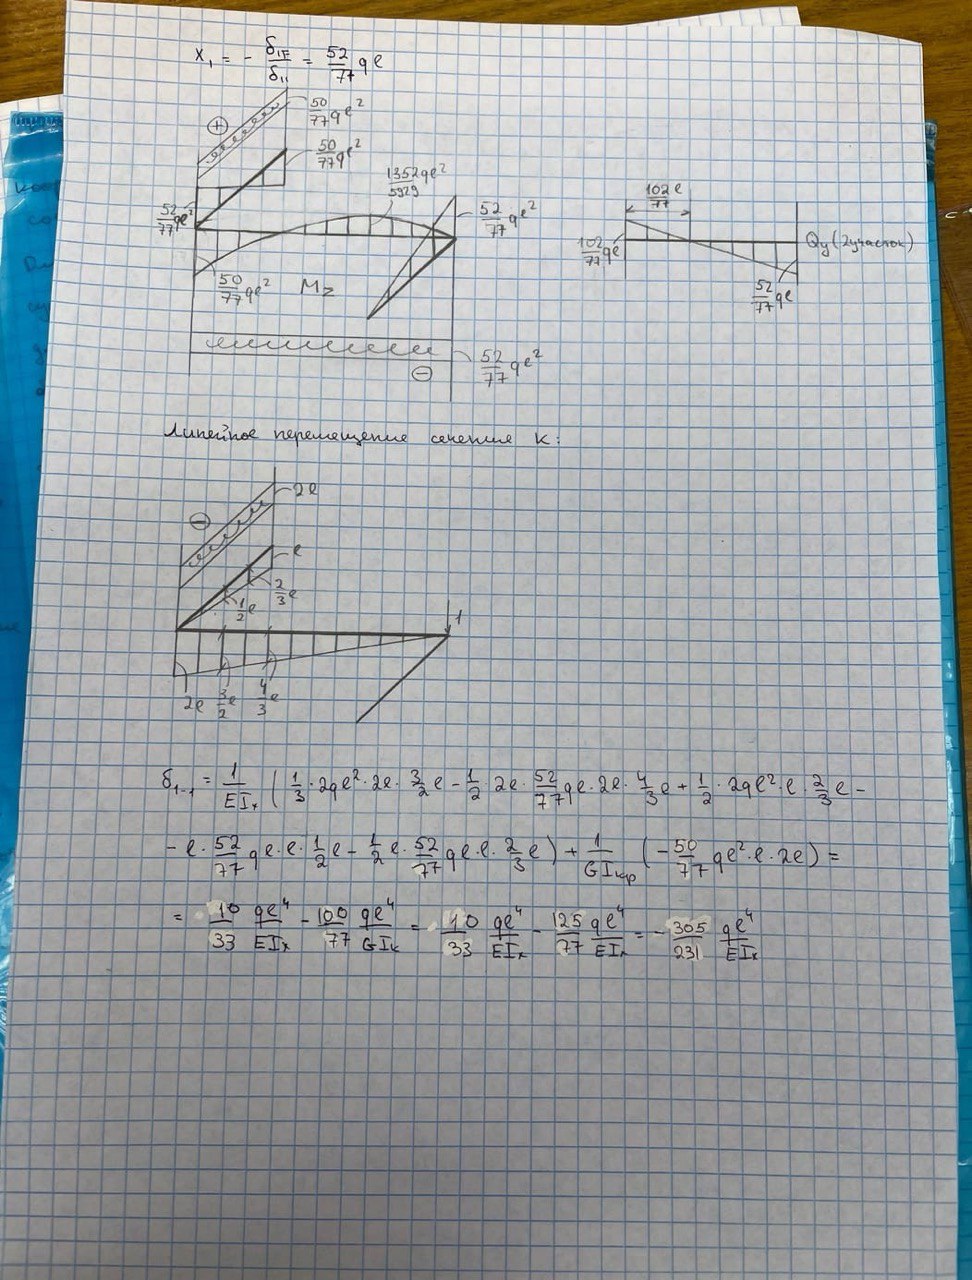 X₁ = - δ₁F/δ₁₁ = 52/77 qℓ
+
50/77 qℓ²
50/77 qℓ²
1352qℓ²/5929
52/77 qℓ²
52/77 qℓ²
50/77 qℓ²
Mz
52/77 qℓ²
-
102ℓ/77
102/77 qℓ
Qy (2участок)
52/77 qℓ
Линейное перемещение сечение К:
-
2ℓ
ℓ
2/3 ℓ
1/2 ℓ
1
2ℓ 3/2 ℓ 4/3 ℓ
δ₁₋₁ = 1/EIₓ ( 1/3 · 2qℓ² · 2ℓ · 3/2 ℓ - 1/2 · 2ℓ · 52/77 qℓ · 2ℓ · 4/3 ℓ + 1/2 · 2qℓ² · ℓ · 2/3 ℓ -
- ℓ · 52/77 qℓ · ℓ · 1/2 ℓ - 1/2 ℓ · 52/77 qℓ · ℓ · 2/3 ℓ ) + 1/GIкр ( - 50/77 qℓ² · ℓ · 2ℓ ) =
= - 10/33 qℓ⁴/EIₓ - 100/77 qℓ⁴/GIк = - 10/33 qℓ⁴/EIₓ - 125/77 qℓ⁴/EIₓ = - 305/231 qℓ⁴/EIₓ